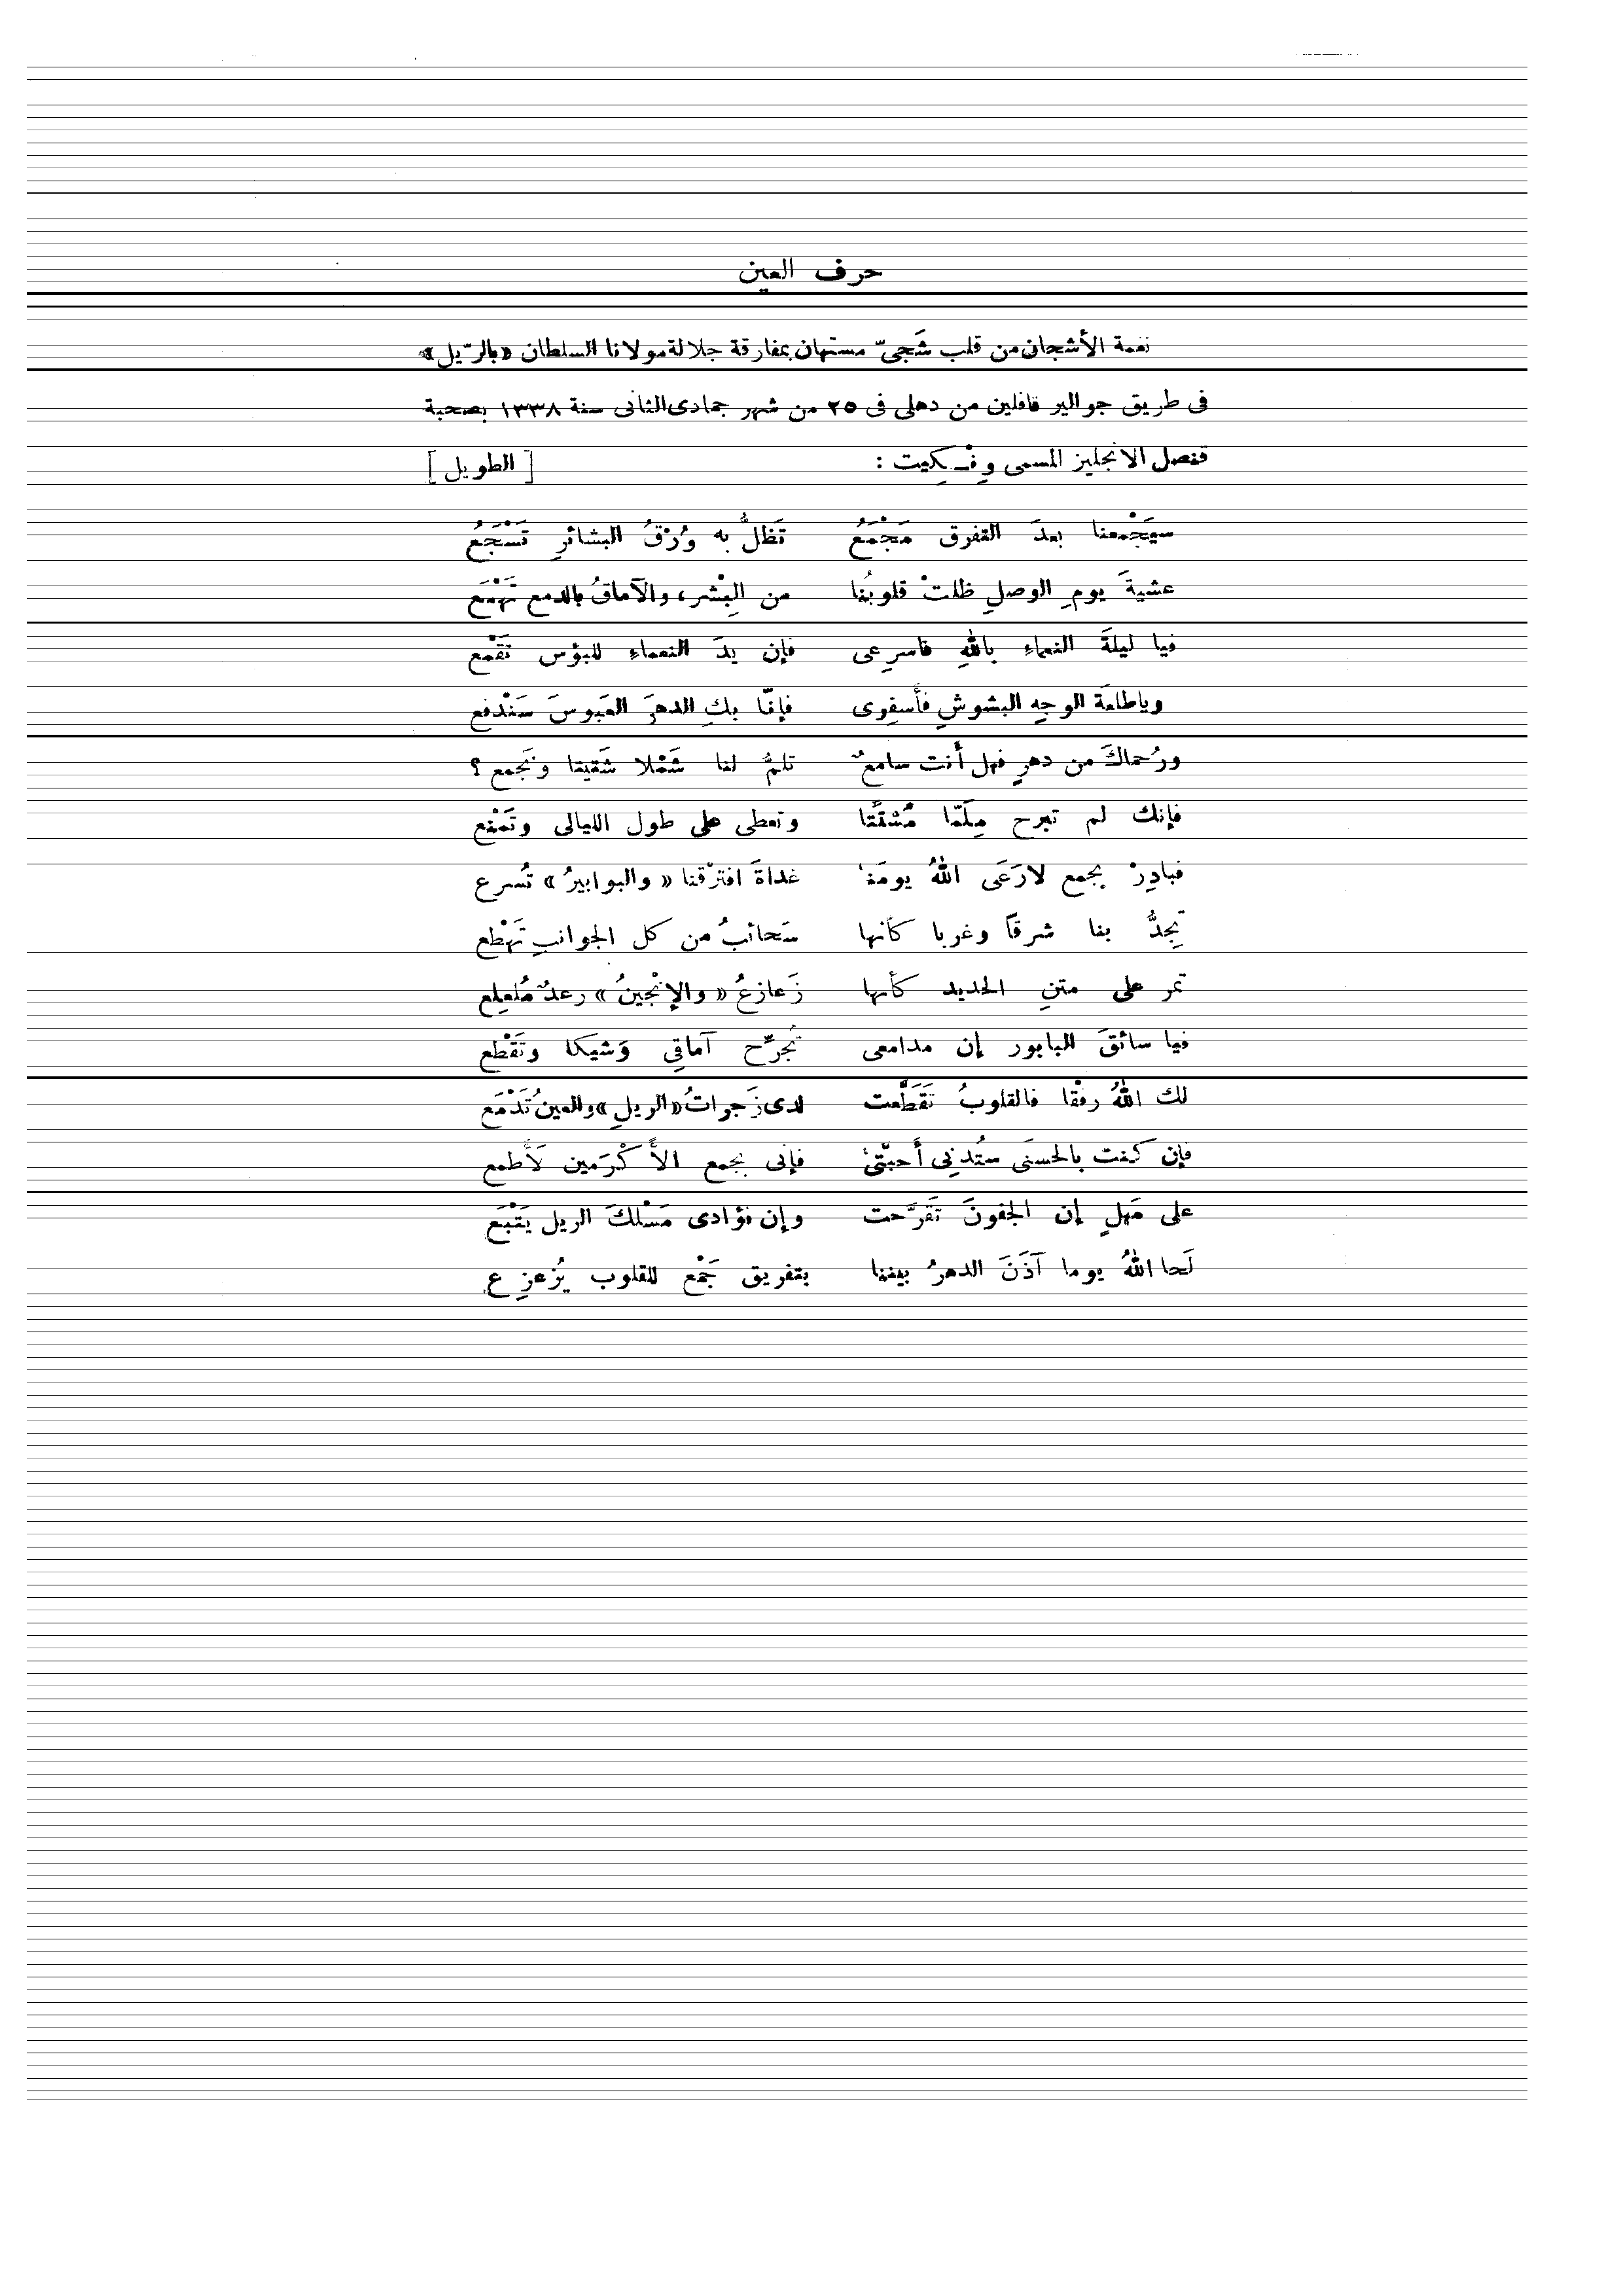 حرف العين
نغمة الأشجان من قلب شَجىّ مستهان بمفارقة جلالة مولانا السلطان «بالرّيل»
فى طريق جوالير قافلين من دهلى فى ٢٥ من شهر جمادى الثانى سنة ١٣٣٨ بصحبة
قنصل الانجليز المسمى وِنْـكِيت : [ الطويل ]
سيَجْمعنا بعدَ التفرق مَجْمَعُ تَظلُّ به وُرْقُ البشائرِ تَسْجَعُ
عشيةَ يومِ الوصلِ ظلتْ قلوبُنا من البِشْر، والآماقُ بالدمع تَهْمَع
فيا ليلةَ النعماءِ باللهِ فاسرِعى فإن يدَ النعماءِ للبؤس تَقْمَع
وياطلعَة الوجهِ البشوشِ فأَسفِرى فإنّا بكِ الدهرَ العَبوسَ سَنْدفع
ورُحماكَ من دهرٍ فهل أَنت سامعٌ تلمُّ لنا شَمْلا شَتيتا وتَجمع ؟
فإنك لم تبرح مِلَمّا مُشتِّتا وتعطى على طول الليالى وتَمْنع
فبادِرْ بجمع لارَعَى اللهُ يومَنا غداةَ افترْقنا «والبوابيرُ» تُسرع
تجِدُّ بنا شرقًا وغربا كأنها سَحائبُ من كل الجوانبِ تَهْطع
تمر على متنِ الحديد كأنها زَعازعُ «والإنْجينُ» رعدٌ مُلعلِع
فيا سائقَ البابور إن مدامعى تُجرِّح آماقِي وَشيكا وتَقْطع
لك اللهُ رفْقا فالقلوبُ تَقَطَّعت لدى زَجراتُ «الريلِ» والعينُ تَدْمَع
فإن كَنت بالحسنَى ستُدنِى أَحبّتى فإنى بجمع الأَكْرَمين لَأَطمع
على مَهلٍ إن الجفونَ تَقَرَّحت وإن فؤادى مَسْلكَ الريل يَتْبَع
لَحا اللهُ يوما آذَنَ الدهرُ بيننا بتفريق جَمْع للقلوب يُزعزِع